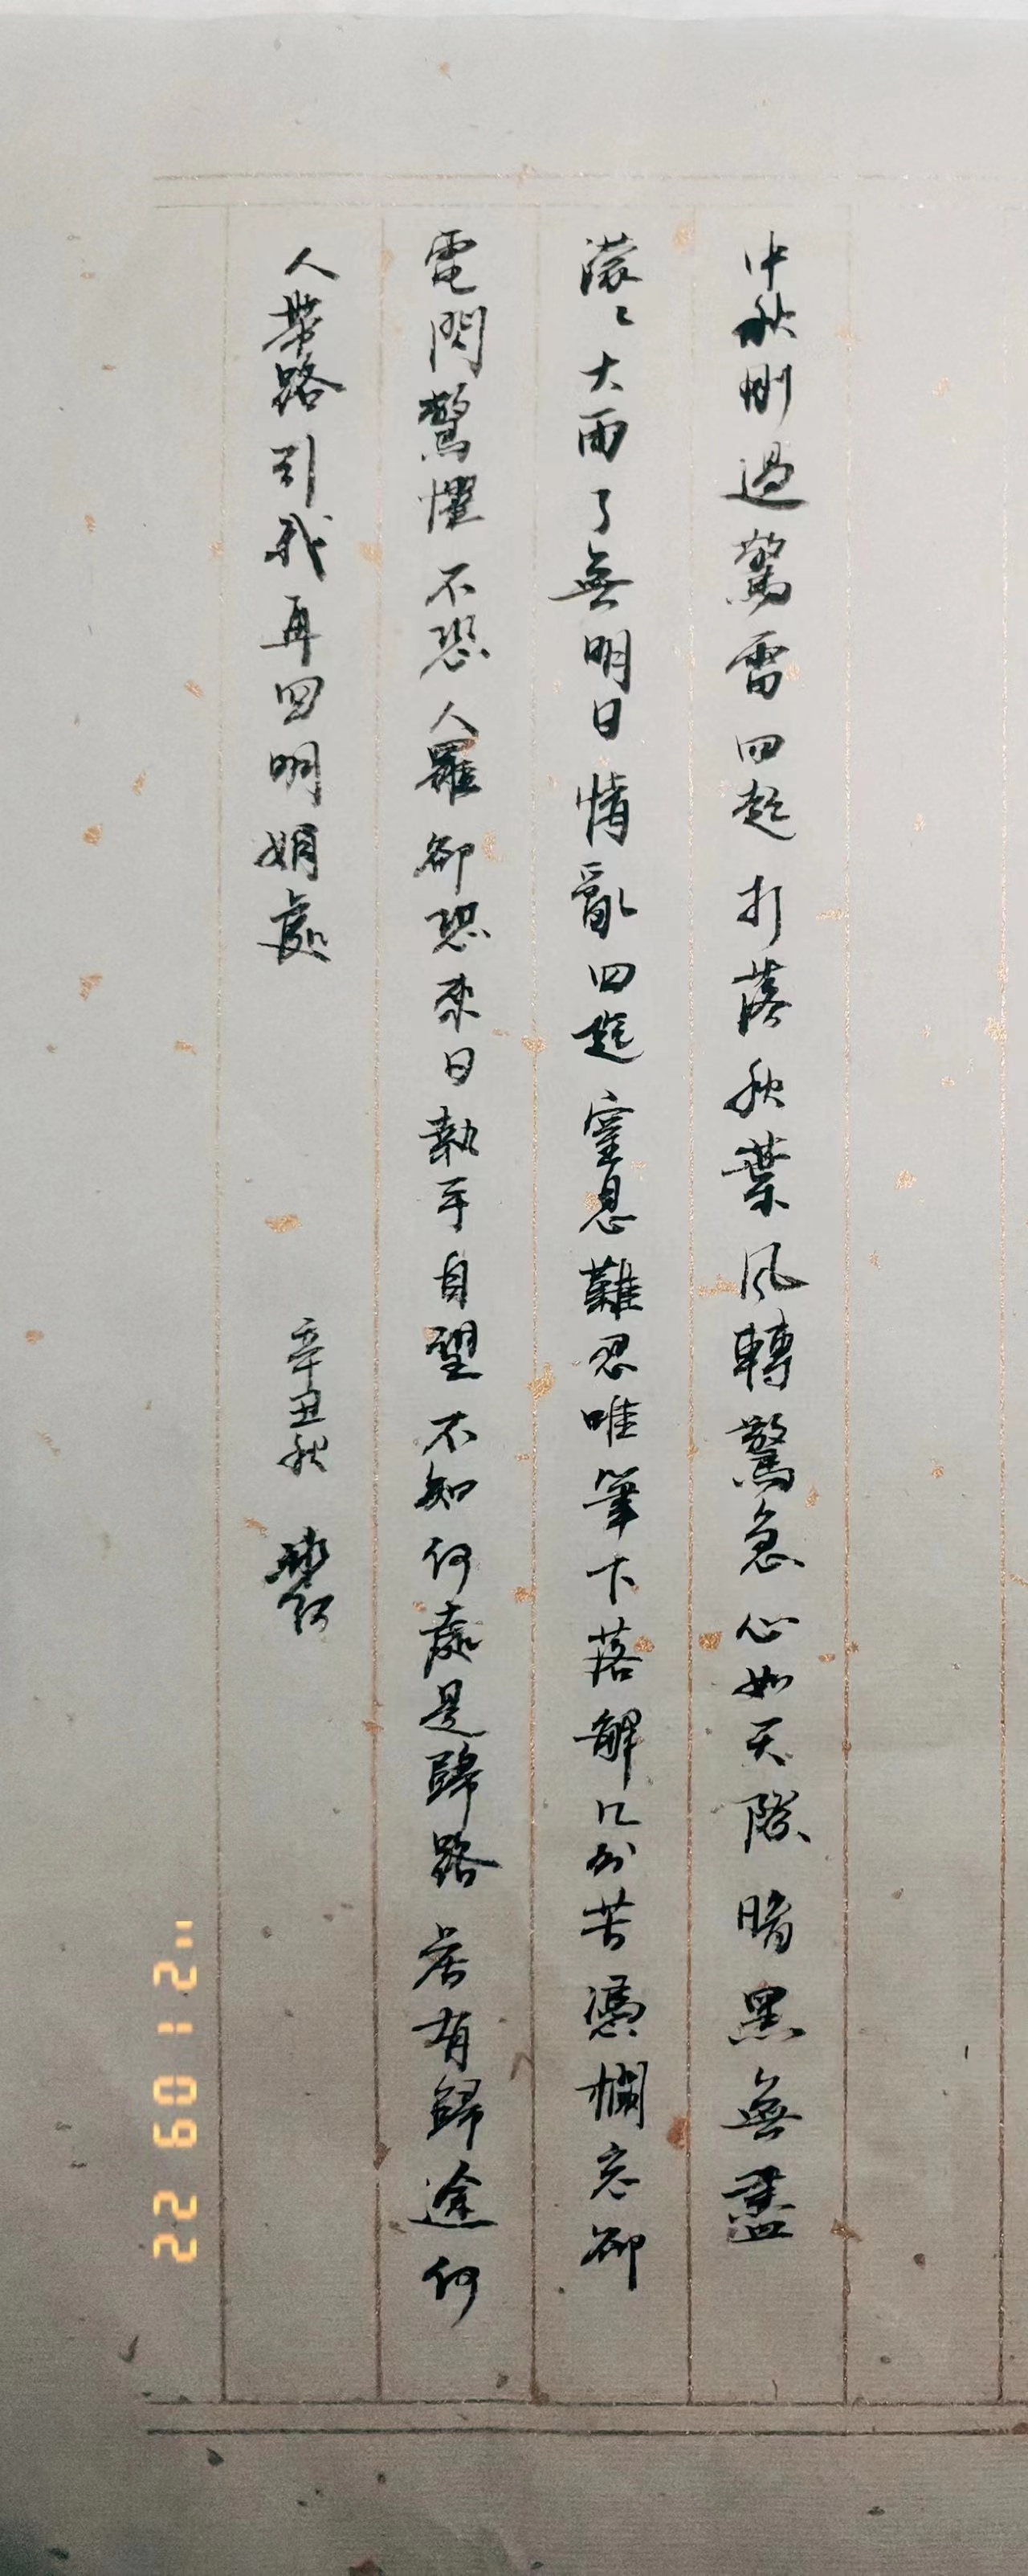 中秋刚過驚雷四起打落秋葉風轉驚急心如天際暗黑無盡
滾〻大雨了無明日情亂四起窒息難忍唯筆下落解几分苦憑欄忘卻
電閃驚懼不恐人羅卻恐來日執手自望不知何處是歸路若有歸途何
人帶路引我再回明娟處
辛丑秋
22 09 1 2 "